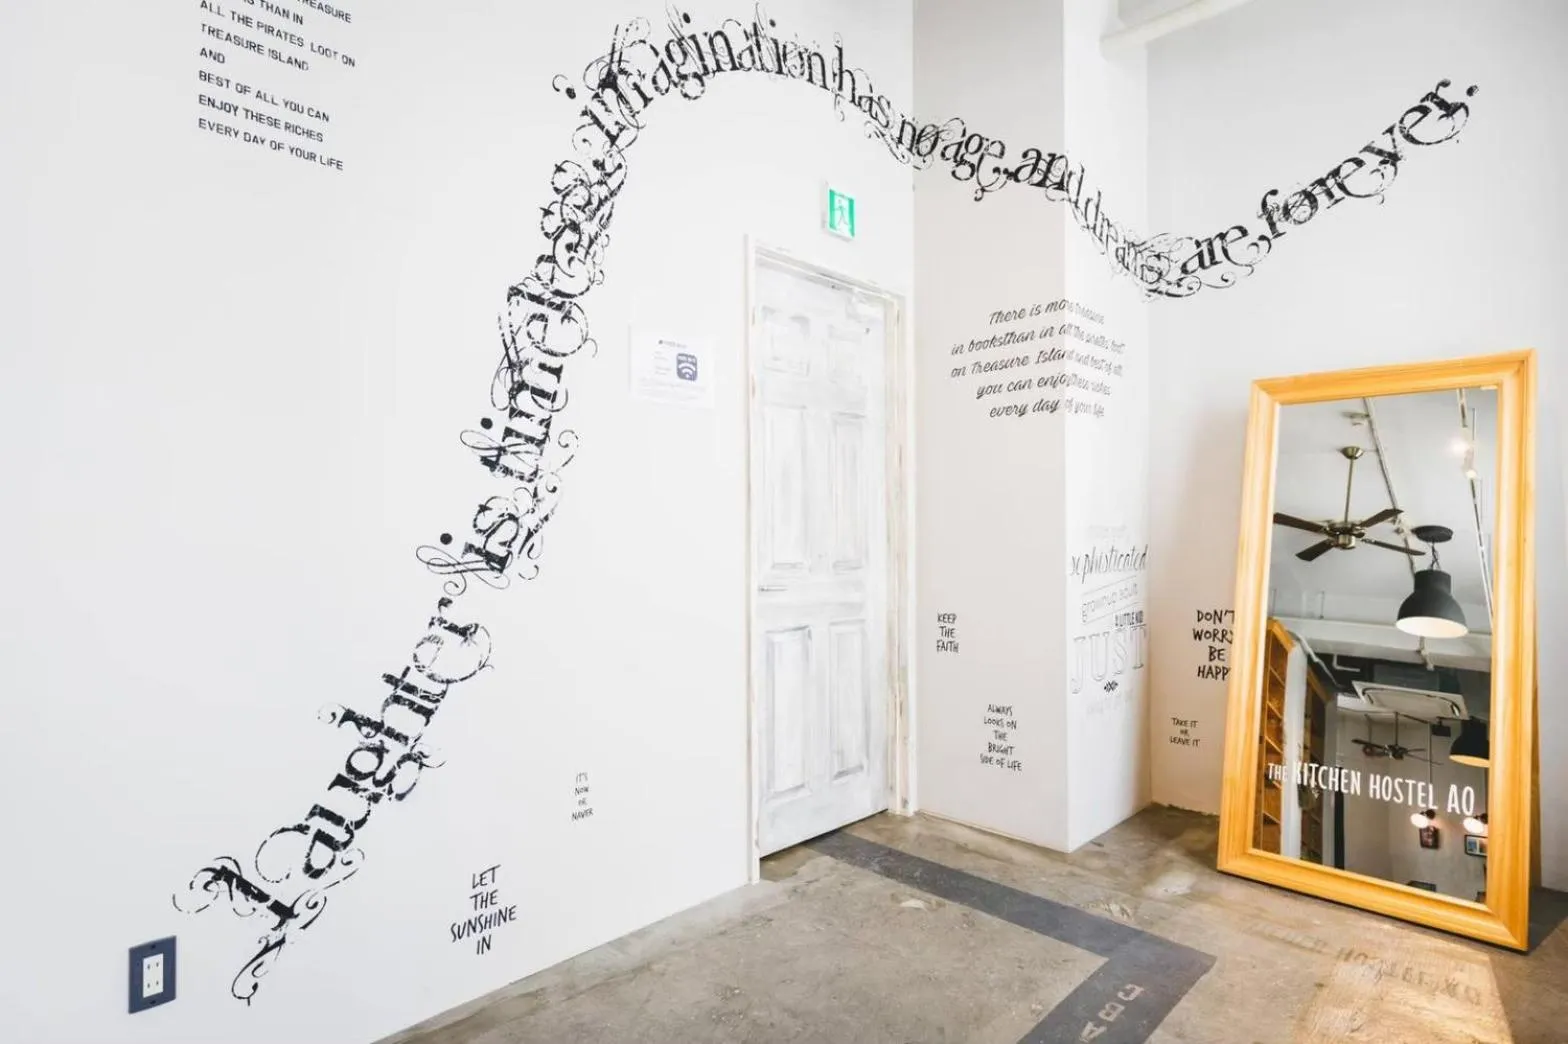 TREASURE
THAN IN
ALL THE PIRATES LOOT ON
TREASURE ISLAND
AND
BEST OF ALL YOU CAN
ENJOY THESE RICHES
EVERY DAY OF YOUR LIFE
Laughter is timeless. imagination has no age. and dreams are forever.
There is more treasure
in booksthan in all the pirates' loot
on Treasure Island and best of all
you can enjoy these riches
every day of your life
sophisticated
grownup
A LITTLE KID
JUST
KEEP
THE
FAITH
ALWAYS
LOOKS ON
THE
BRIGHT
SIDE OF LIFE
DON'T
WORRY
BE
HAPPY
TAKE IT
OR
LEAVE IT
IT'S
NOW
OR
NAVER
LET
THE
SUNSHINE
IN
THE KITCHEN HOSTEL AO